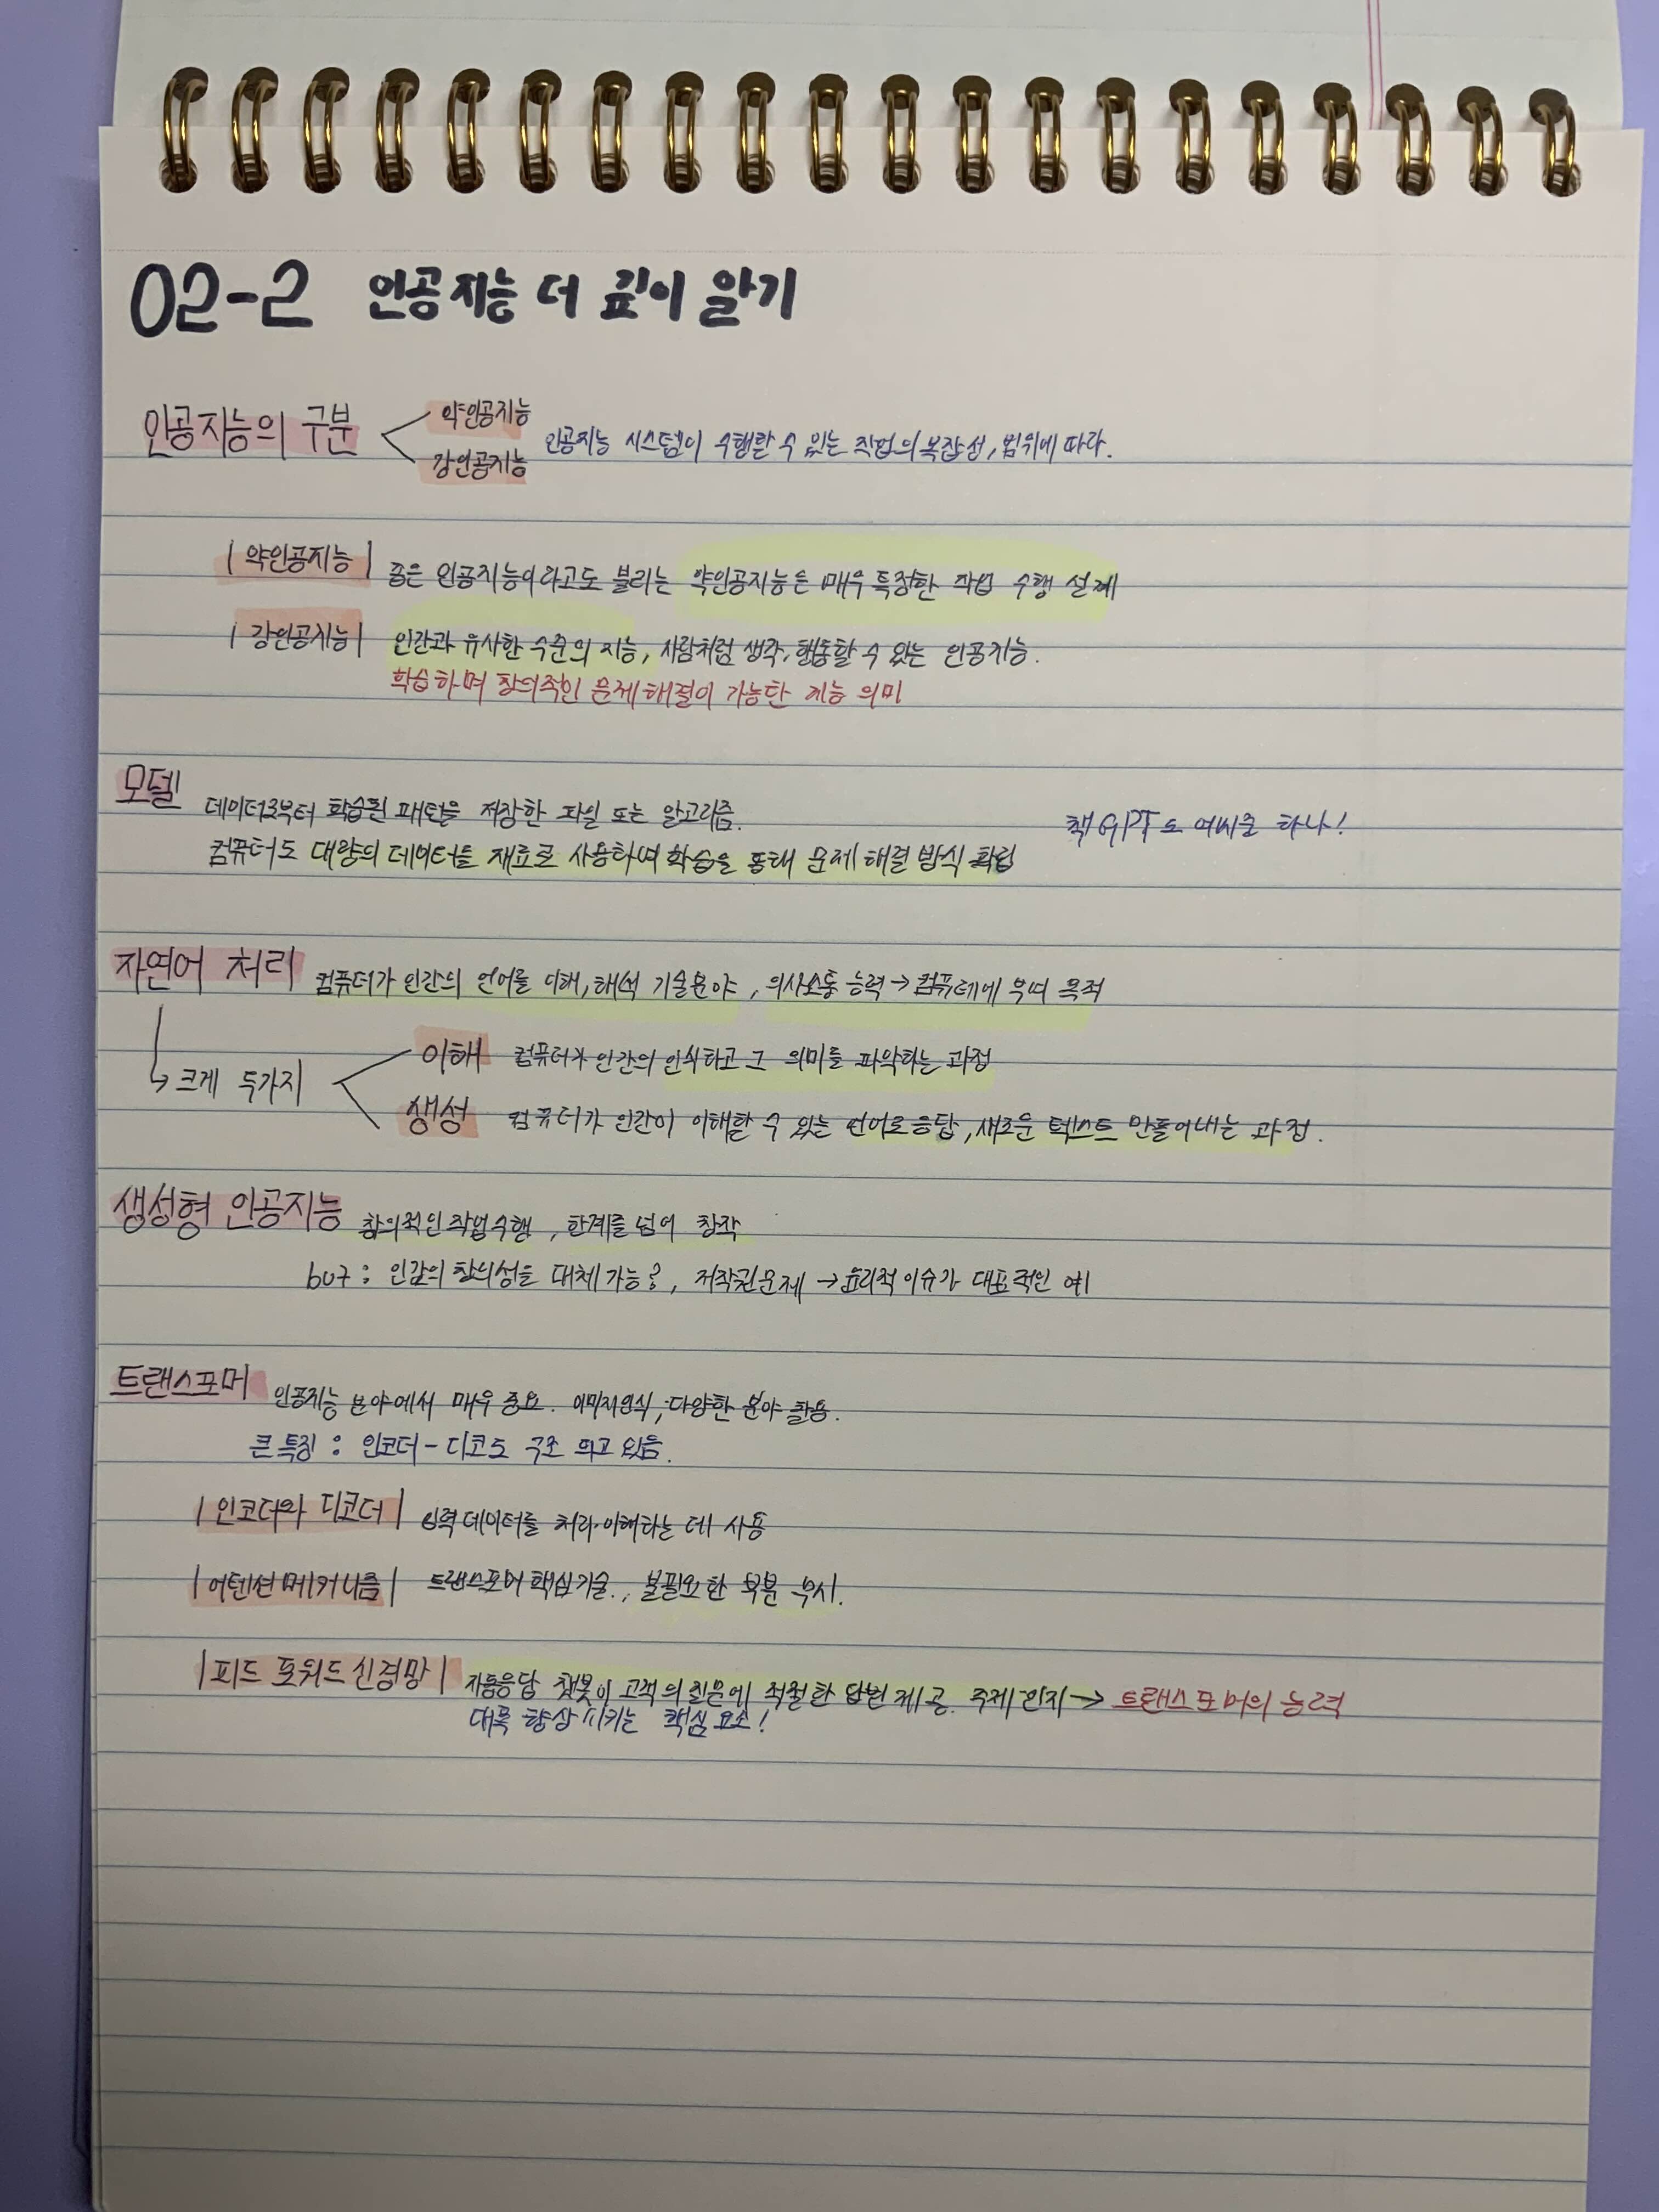 02-2 인공지능 더 깊이 알기
인공지능의 구분
약인공지능
강인공지능
인공지능 시스템이 수행할 수 있는 작업의 복잡성, 범위에 따라.
|약인공지능| 좁은 인공지능이라고도 불리는 약인공지능은 매우 특정한 작업 수행 설계
|강인공지능| 인간과 유사한 수준의 지능, 사람처럼 생각, 행동할 수 있는 인공지능.
학습하며 창의적인 문제해결이 가능한 지능 의미
모델 데이터로부터 학습된 패턴을 저장한 파일 또는 알고리즘.
컴퓨터도 대량의 데이터를 재료로 사용하며 학습을 통해 문제 해결 방식 확립
책GPT도 하나!
자연어 처리 컴퓨터가 인간의 언어를 이해, 해석 기술분야, 의사소통 능력→컴퓨터에 부여 목적
↳ 크게 두가지
이해 컴퓨터가 인간의 인식하고 그 의미를 파악하는 과정
생성 컴퓨터가 인간이 이해할 수 있는 언어로 응답, 새로운 텍스트 만들어내는 과정.
생성형 인공지능 창의적인 작업수행, 한계를 넘어 창작
but : 인간의 창의성을 대체가능?, 저작권문제 → 윤리적 이슈가 대표적인 예
트랜스포머 인공지능 분야에서 매우 중요. 이미지인식, 다양한 분야 활용.
큰 특징 : 인코더-디코드 구조 되고 있음.
|인코더와 디코더| 입력 데이터를 처리·이해하는 데 사용
|어텐션 메커니즘| 트랜스포머 핵심기술., 불필요한 부분 무시.
|피드 포워드 신경망| 자동응답 챗봇이 고객의 질문에 적절한 답변 제공. 주제 인지 → 트랜스포머의 능력
대폭 향상 시키는 핵심 요소!